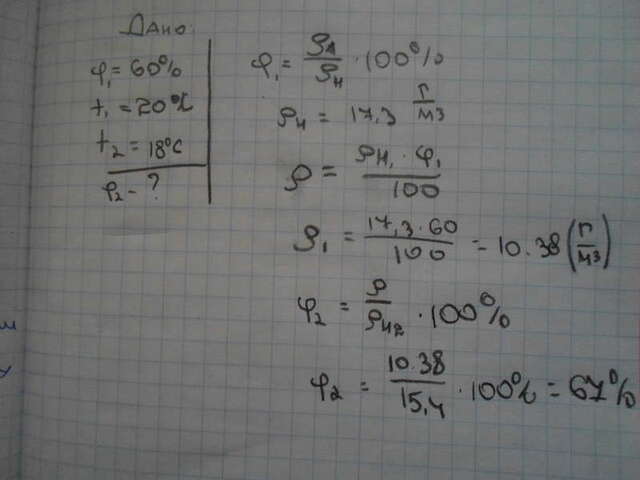 Дано
φ₁ = 60%
t₁ = 20°C
t₂ = 18°C
φ₂ - ?
φ₁ = ρ₁/ρн · 100%
ρн = 17,3 г/м3
ρ = ρн₁ · φ₁ / 100
ρ₁ = 17,3 · 60 / 100 = 10.38 (г/м3)
φ₂ = ρ/ρн₂ · 100%
φ₂ = 10.38 / 15,4 · 100% = 67%